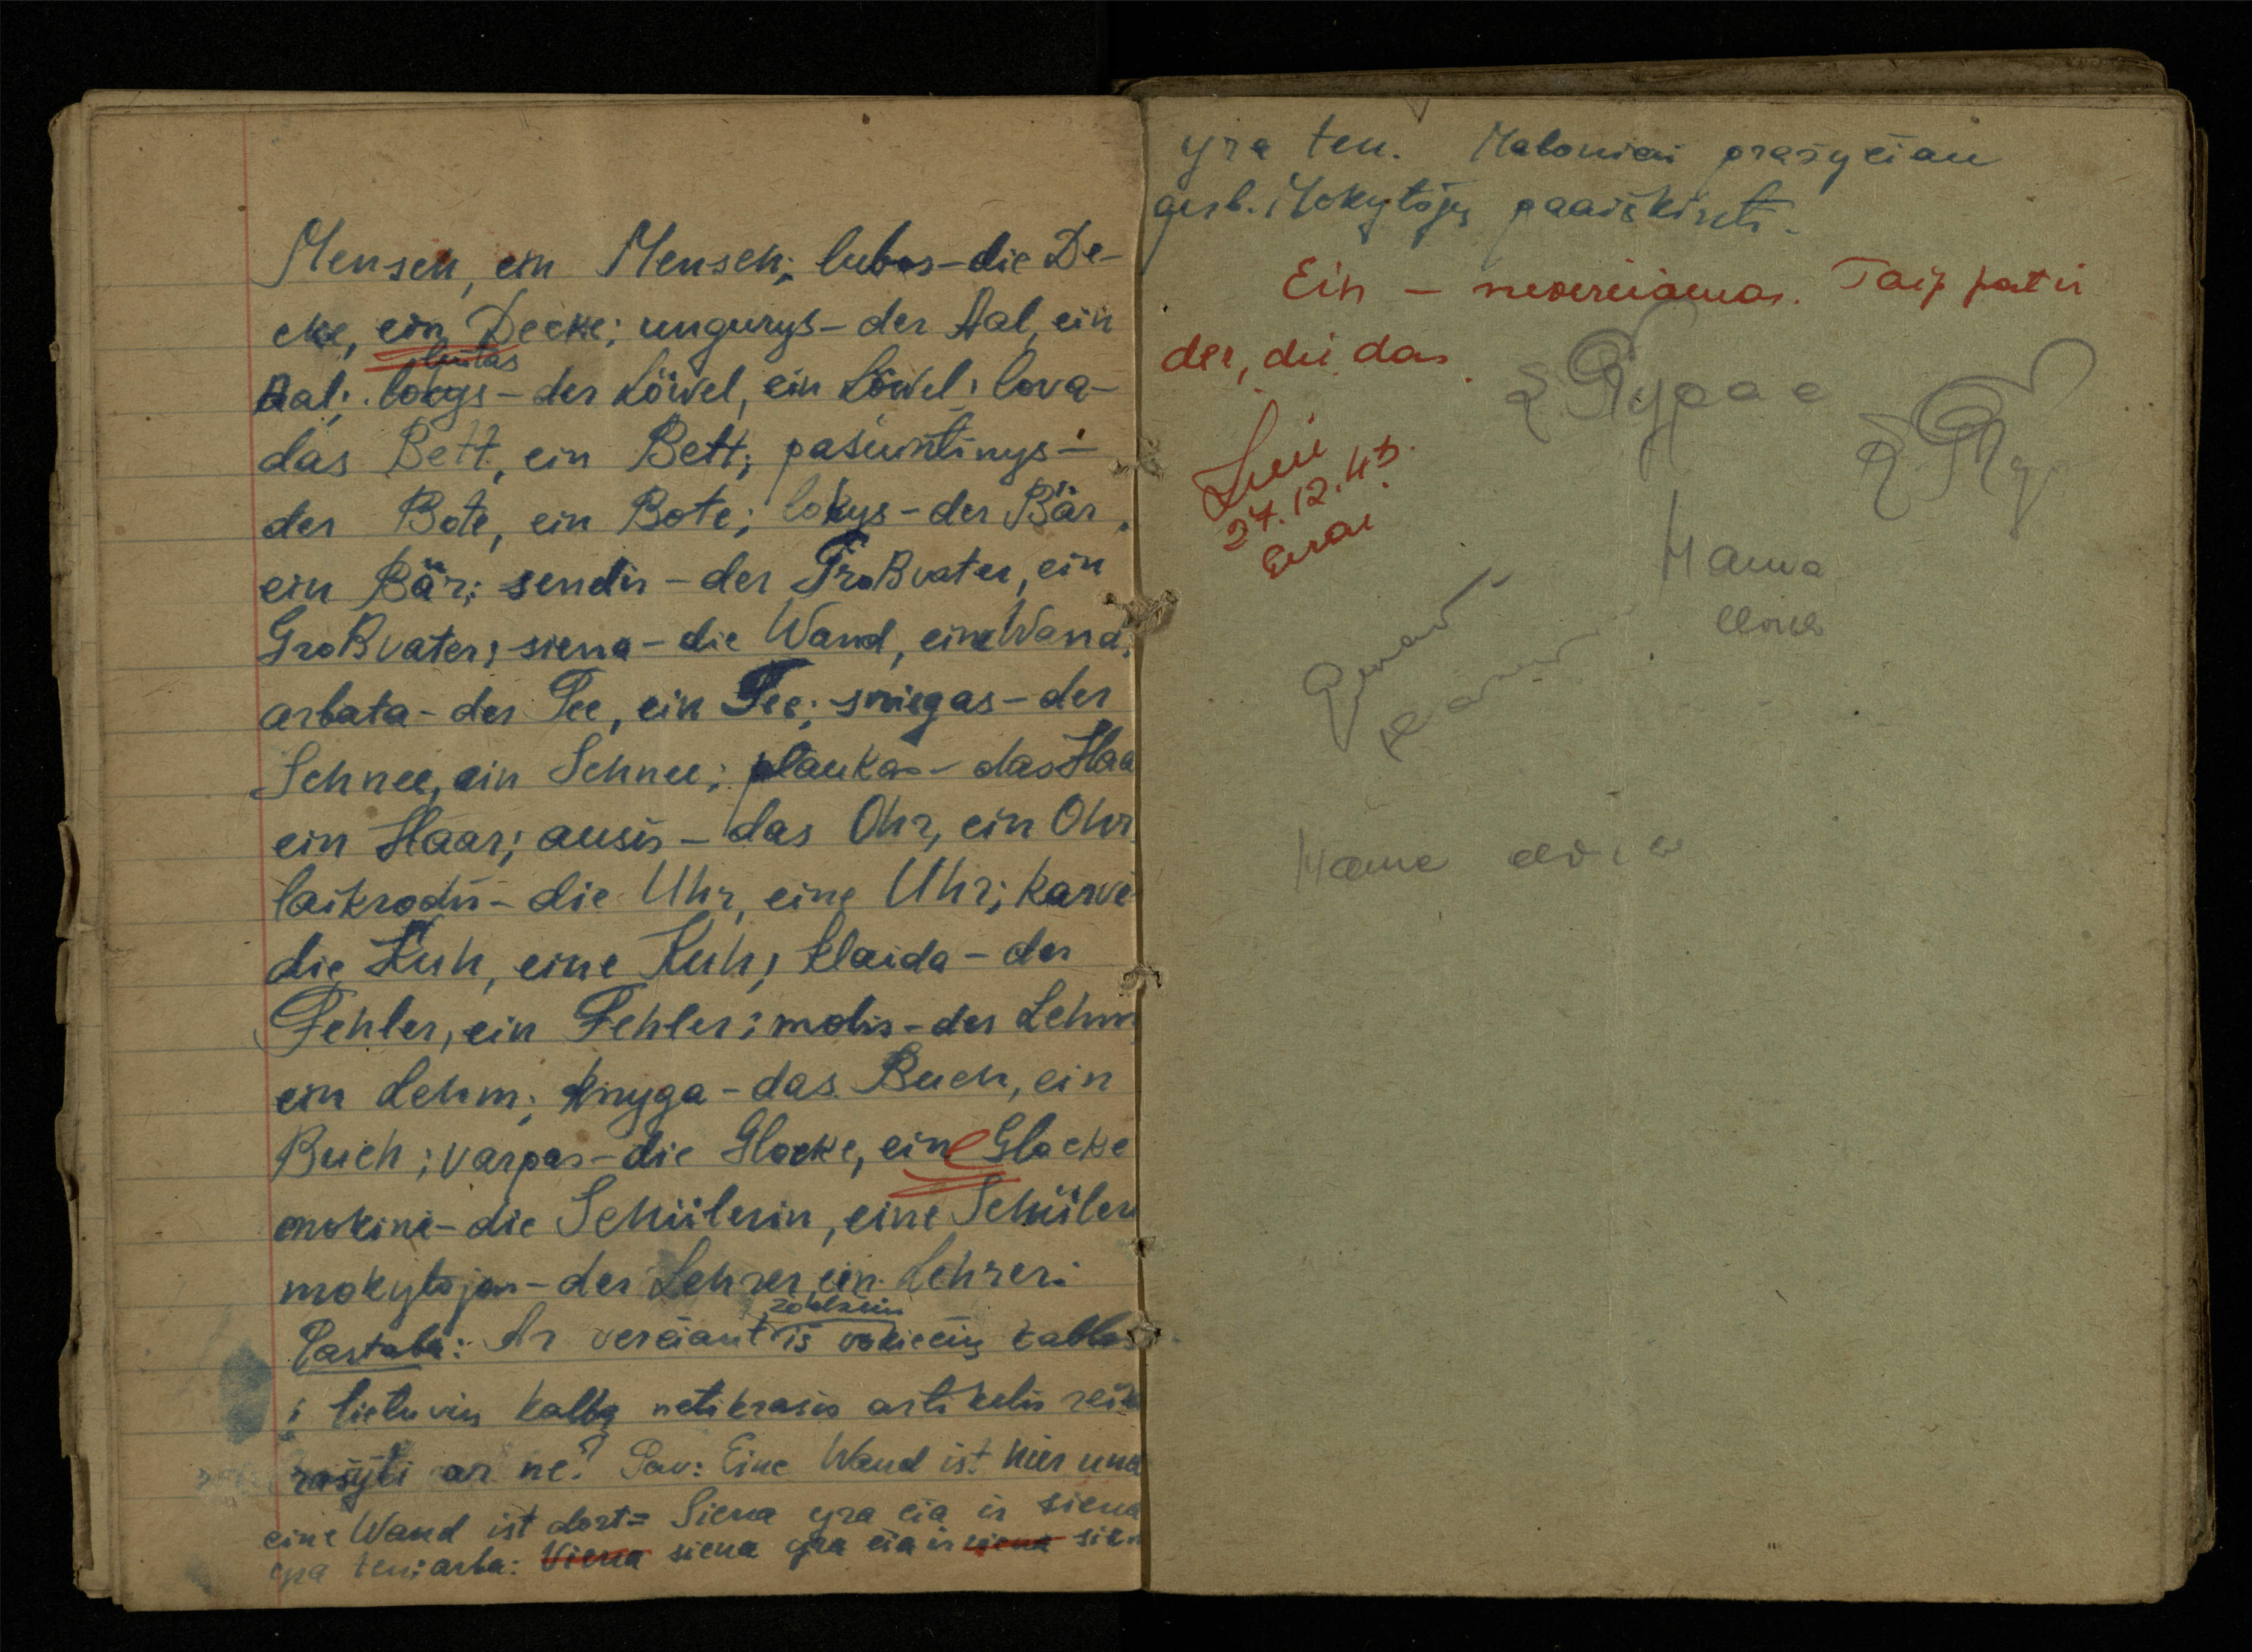 Mensch, ein Mensch; lubos-die De-
cke, ein Decke; ungurys-der Aal, ein
liūtas
Aal; lokys-der Löwel, ein Löwel; lova-
das Bett, ein Bett; pasiuntinys-
der Bote, ein Bote; lokys-der Bär,
ein Bär; senelis-der Großvater, ein
Großvater; siena-die Wand, eine Wand;
arbata-der Tee, ein Tee; sniegas-der
Schnee, ein Schnee; plaukas-das Haa
ein Haar; ausis-das Ohr, ein Ohr
laikrodis-die Uhr, eine Uhr; karvė
die Kuh, eine Kuh; klaida-der
Fehler, ein Fehler; molis-der Lehm
ein Lehm; knyga-das Buch, ein
Buch; varpas-die Glocke, eine Glocke
mokinė-die Schülerin, eine Schüleri
mokytojas-der Lehrer, ein Lehrer.
Pastaba: Ar verčiant iš vokiečių kalbos
į lietuvių kalbą netikrasis artikelis reik
rašyti ar ne? Pav: Eine Wand ist hier und
eine Wand ist dort= Siena yra čia ir siena
yra ten; arba: Viena siena yra čia ir viena sien
yra ten. Maloniai prašyčiau
gerb. Mokytojų paaiškinti.
Ein - neverčiamas. Taip pat ir
der, die das.
27.12.45.
Mama
Mama